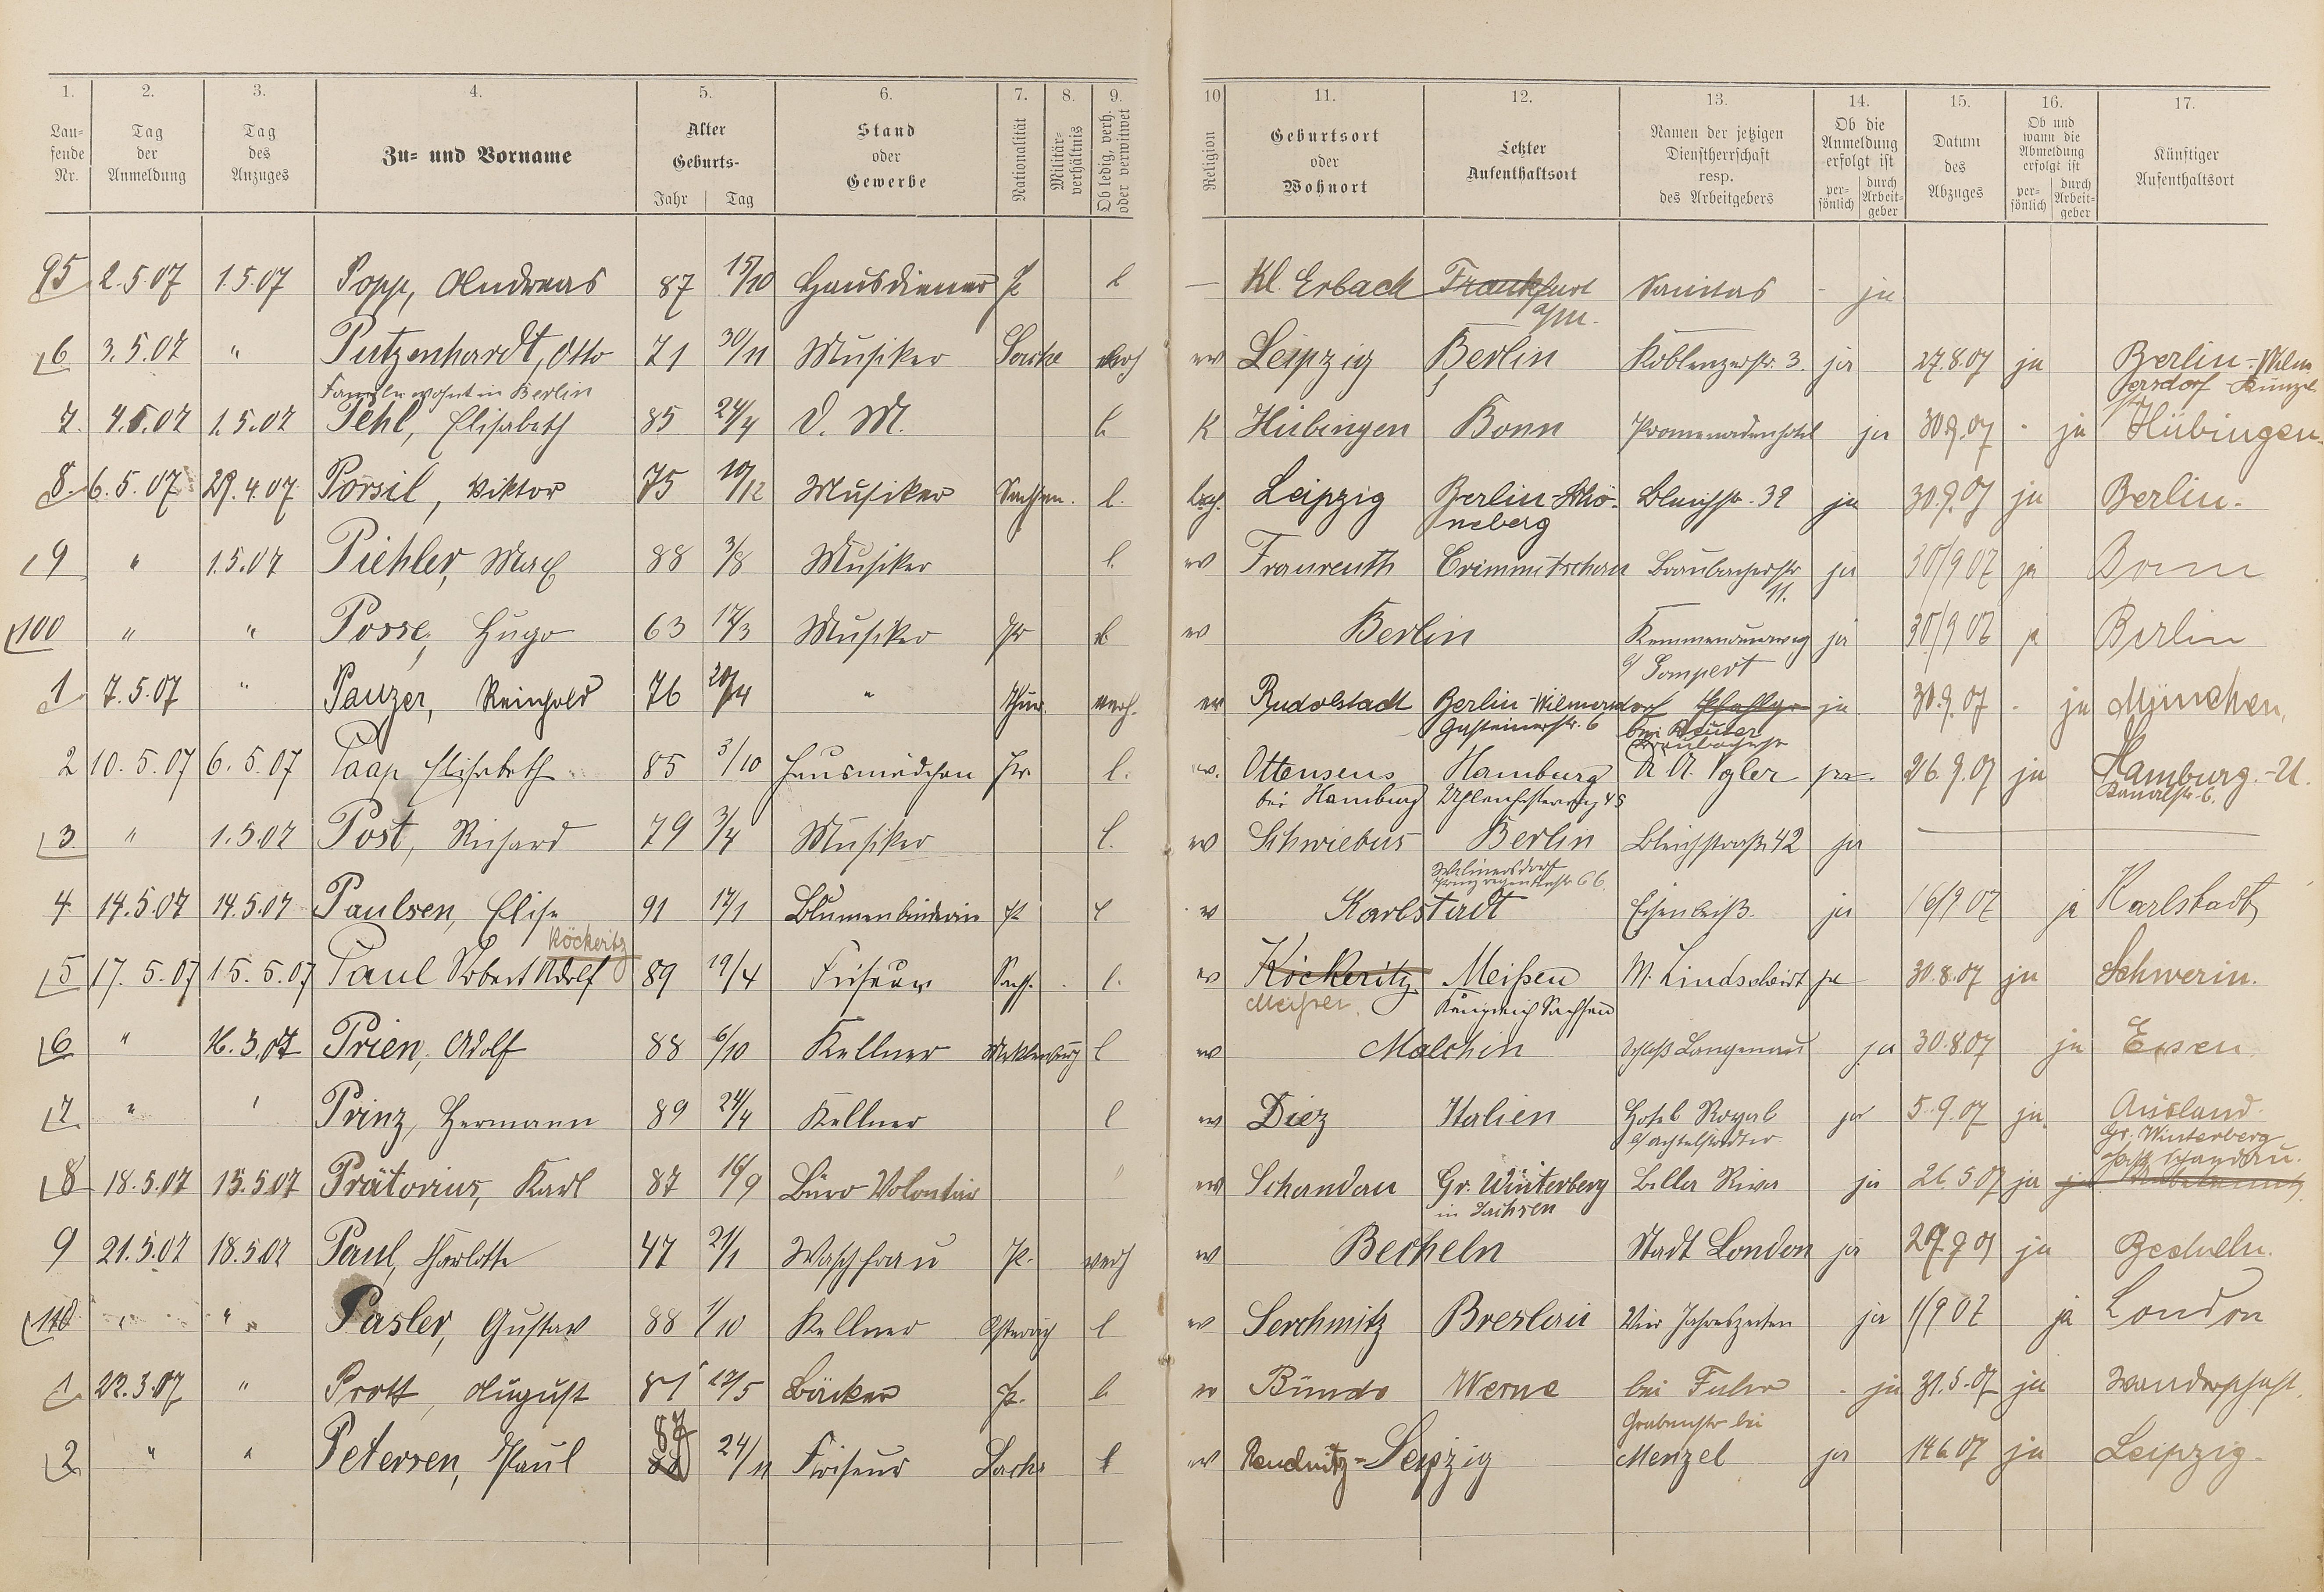 1. 2. 3. 4. 5. 6. 7. 8. 9. 10 11. 12. 13. 14. 15. 16. 17.
Lau-
fende
Nr.
Tag
der
Anmeldung
Tag
des
Anzuges
Zu- und Vorname
Alter
Geburts-
Jahr Tag
Stand
oder
Gewerbe
Nationalität
Militär-
verhältnis
Ob ledig, verh.
oder verwitwet
Religion
Geburtsort
oder
Wohnort
Letzter
Aufenthaltsort
Namen der jetzigen
Dienstherrschaft
resp.
des Arbeitgebers
Ob die
Anmeldung
erfolgt ist
per-
sönlich
durch
Arbeit-
geber
Datum
des
Abzuges
Ob und
wann die
Abmeldung
erfolgt ist
per-
sönlich
durch
Arbeit-
geber
Künftiger
Aufenthaltsort
95 2.5.07 1.5.07 Popp, Andreas 87 15/10 Hausdiener P l — Kl. Erbach Frankfurt Sanitas - ja
a/M.
6 3.5.07 " Putzenhardt, Otto 71 30/11 Musiker Sachse verh ev Leipzig Berlin Koblenzerstr. 3. ja 27.8.07 ja Berlin-Wilm
Familie wohnt in Berlin
7. 4.5.07 1.5.07 Pehl, Elisabeth 85 24/4 D. M. l. K Hübingen Bonn Promenadenhotel ja 30.9.07 - ja Hübingen
8. 6.5.07 29.4.07 Pörsil, Viktor 75 10/12 Musiker Sachsen. l. Leipzig Berlin-Schö- Bleichstr. 39 ja 30.9.07 ja Berlin.
neberg
9 " 1.5.07 Piehler, Max 88 3/8 Musiker l. ev Fraureuth Crimmitschau Braubacherstr ja 30/9 07 ja Bonn
11.
100 " " Posse, Hugo 63 17/3 Musiker Pr l. ev Berlin Kemmenauerweg ja 30/9 07 ja Berlin
b/ Gompert
1 7.5.07 " Panzer, Reinhold 76 20/4 " Thür. verh. ev Rudolstadt Berlin-Wilmersdorf ja 30.9.07 - ja München.
Gasteinerstr. 6
2 10.5.07 6.5.07 Paap Elisabeth 85 3/10 Hausmädchen Pr. l. ev. Ottensens Hamburg Vgler ja. 26.9.07 ja Hamburg.-U.
bei Hamburg 45 Kanalstr. 6.
3. " 1.5.07 Post, Richard 79 3/4 Musiker l. ev Schwiebus Berlin Bleichstraße 42 ja —
Wilmersdorf
4. 14.5.07 14.5.07 Paulsen, Elise 91 17/1 Blumenbinderin P l ev Karlstadt Eisenbeiß. ja 16/9 07 ja Karlstadt
Köckeritz
5 17.5.07 15.5.07 Paul Robert Adolf 89 19/4 Friseur Sachs. l. ev Köckeritz Meißen W. Lindscheidt ja 30.8.07 ja Schwerin.
Meißen. Königreich Sachsen
6 " 16.3.07 Prien, Adolf 88 6/10 Kellner Mecklenburg l ev Malchin Schloß Langenau ja 30.8.07 ja Essen
7. " ' Prinz, Hermann 89 24/4 Kellner l ev Diez Italien Hotel Royal ja 5.9.07 ja. Ausland.
Gr. Winterberg
8 18.5.07 15.5.07 Prätorius, Karl 87 16/9 Büro Volontär " ev Schandau Gr. Winterberg Bella Riva ja 26.5.07 ja
in Sachsen
9 21.5.07 18.5.07 Paul, Charlotte 47 21/1 Waschfrau P. verh ev Becheln Stadt London ja 29.9.07 ja Becheln.
110 " " Pasler, Gustav 88 1/10 Kellner Österreich l ev Serchmitz Breslau Vier Jahreszeiten ja 1/9 07 ja London
1 22.3.07 " Prott, August 81 12/5 Bäcker P. l ev Bünde Werne bei Fuhr - ja 31.5.07 ja Wanderschaft.
Grabenstr bei
2 " " Petersen, Paul 87 24/11 Friseur Sachs l ev Reudnitz-Leipzig Menzel ja 14.6.07 ja Leipzig.